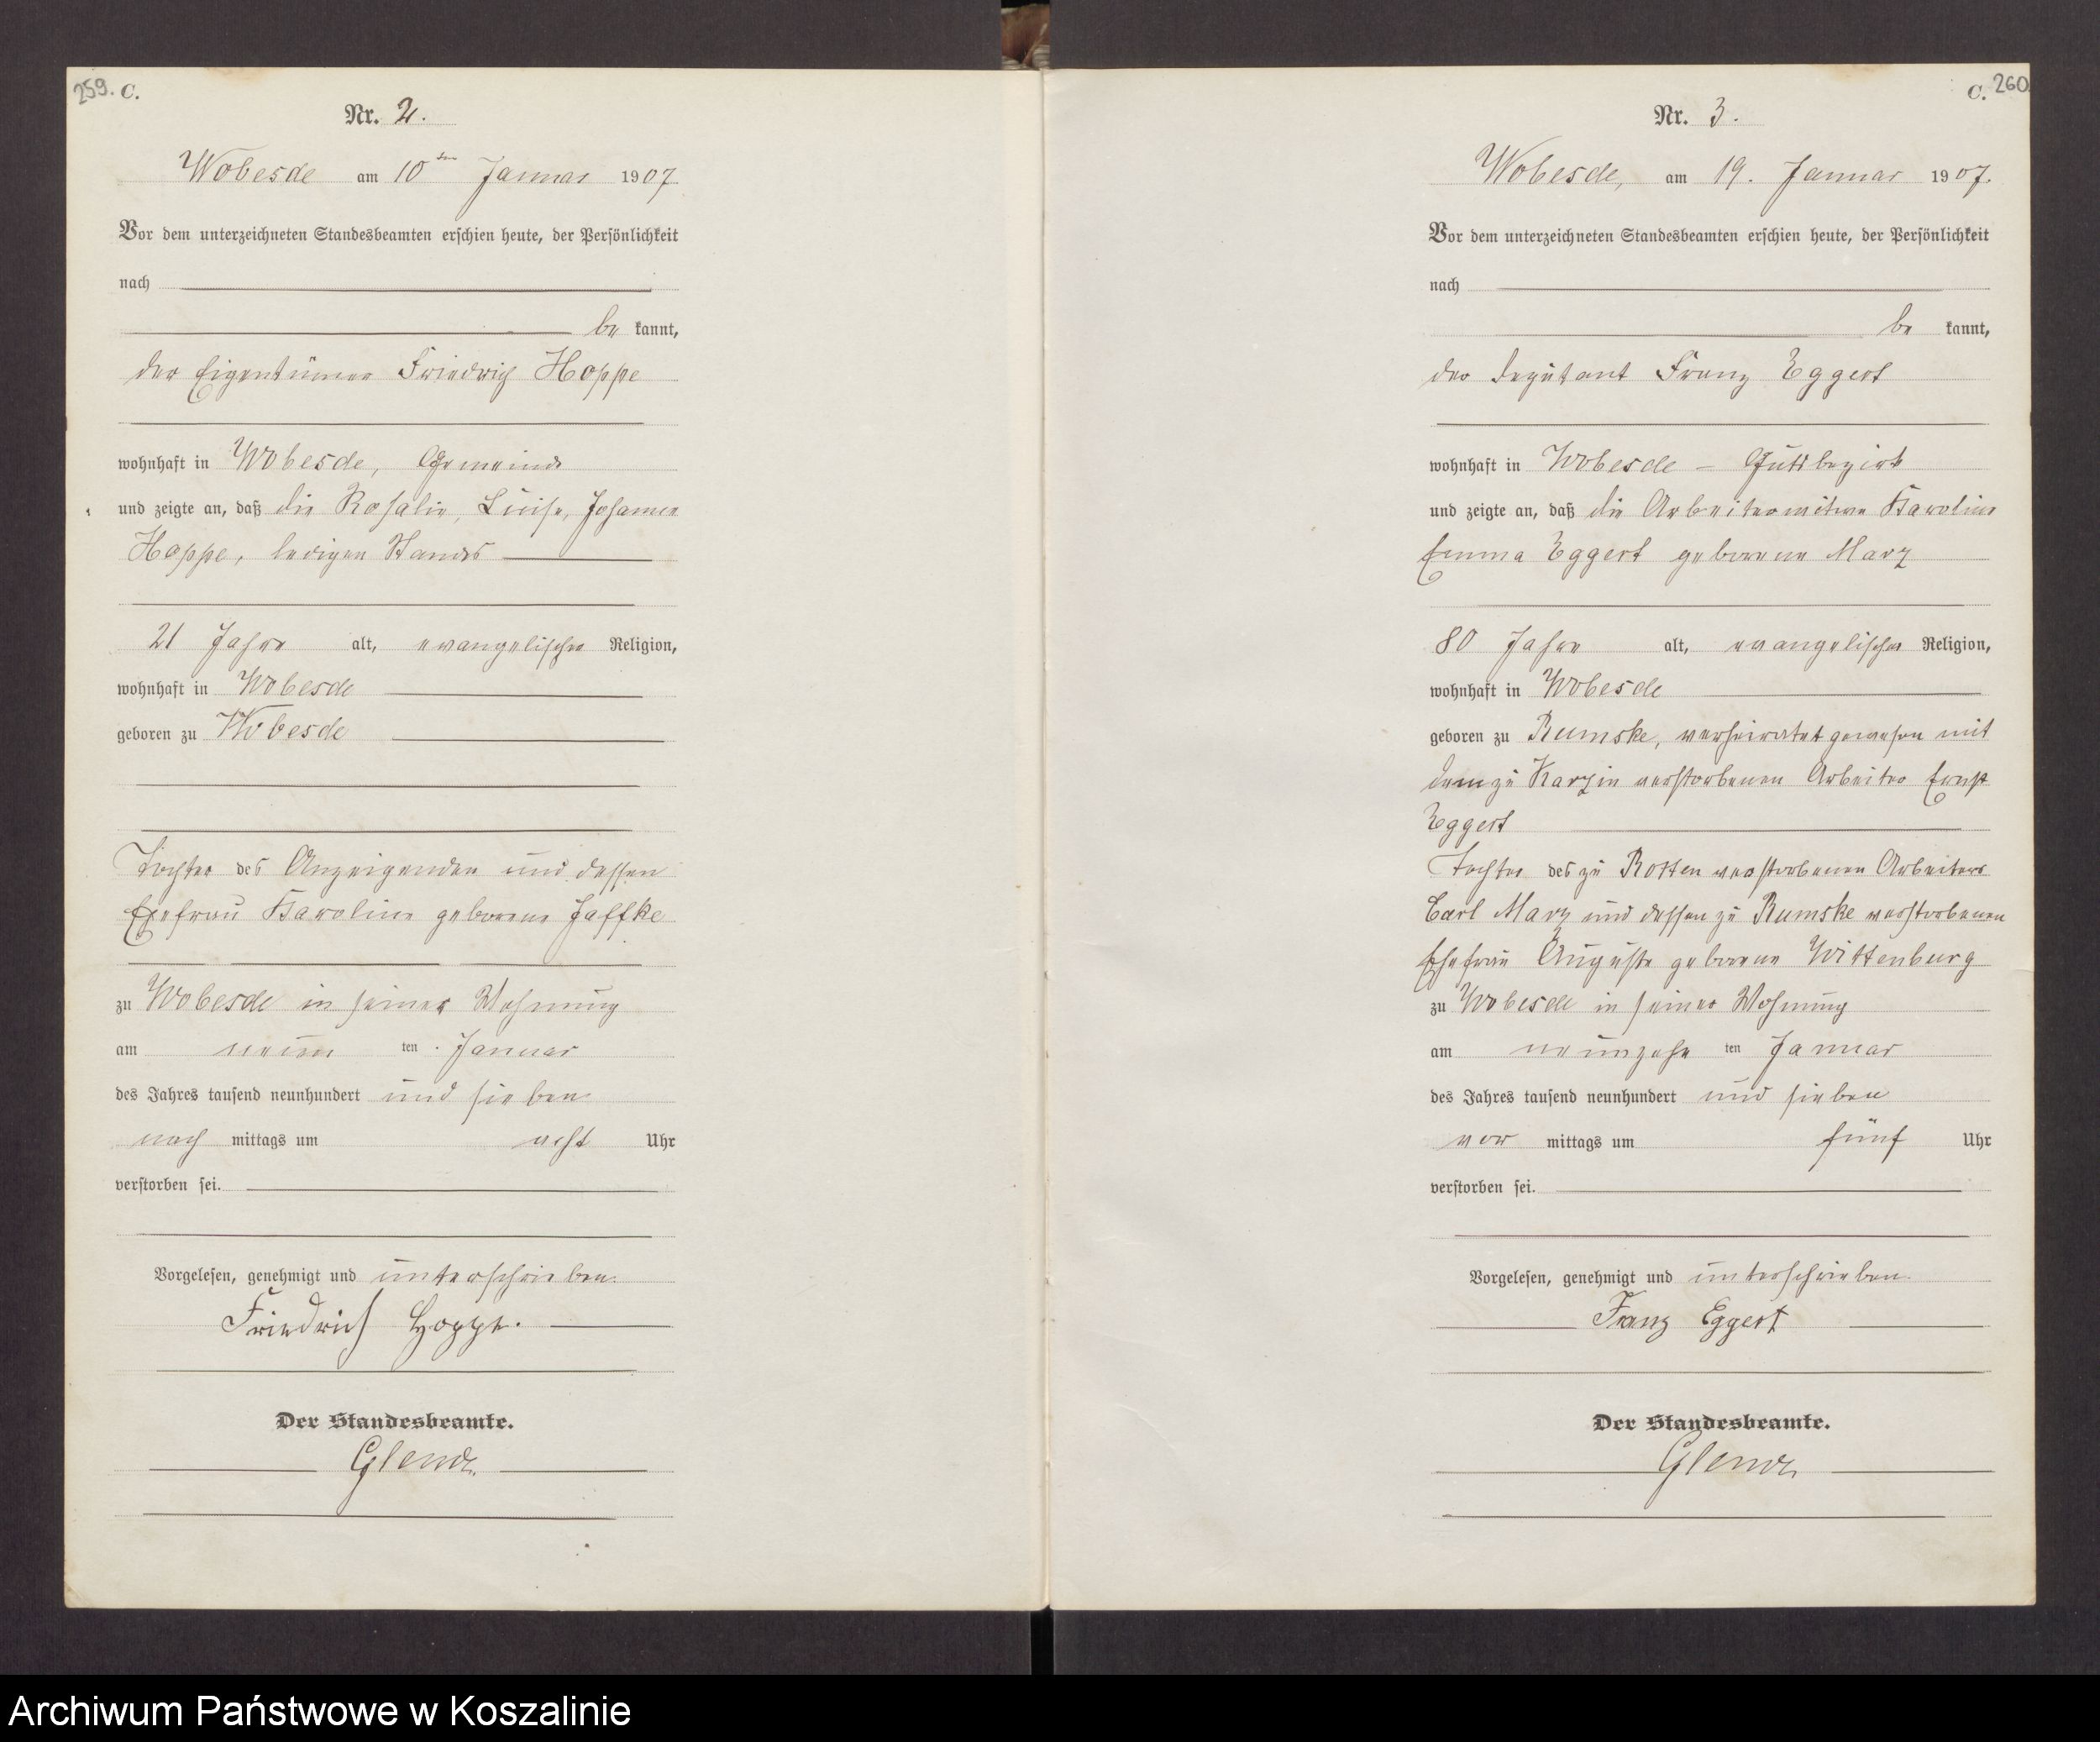 259. C.
Nr. 2.
Wobesde am 10ten Januar 1907
Vor dem unterzeichneten Standesbeamten erschien heute, der Persönlichkeit
nach
be kannt,
der Eigentümer Friedrich Hoppe
wohnhaft in Wobesde, Gemeinde
und zeigte an, daß die Rosalie, Luise, Johanna
Hoppe, ledigen Standes
21 Jahre alt, evangelischer Religion,
wohnhaft in Wobesde
geboren zu Wobesde
Tochter des Anzeigenden und dessen
Ehefrau Karoline geborene Jaffke
zu Wobesde in seiner Wohnung
am neun ten Januar
des Jahres tausend neunhundert und sieben
nach mittags um acht Uhr
verstorben sei.
Vorgelesen, genehmigt und unterschrieben.
Friedrich Hoppe.
Der Standesbeamte.
C. 260
Nr. 3.
Wobesde, am 19. Januar 1907.
Vor dem unterzeichneten Standesbeamten erschien heute, der Persönlichkeit
nach
be kannt,
der Deputant Franz Eggert
wohnhaft in Wobesde – Gutsbezirk
und zeigte an, daß die Arbeiterwitwe Karoline
Emma Eggert geborene Marz
80 Jahre alt, evangelischer Religion,
wohnhaft in Wobesde
geboren zu Rumske, verheiratet gewesen mit
dem zu Karzin verstorbenen Arbeiter Ernst
Eggert
Tochter des zu Rotten verstorbenen Arbeiters
Carl Marz und dessen zu Rumske verstorbenen
Ehefrau Auguste geborene Wittenburg
zu Wobesde in seiner Wohnung
am neunzehn ten Januar
des Jahres tausend neunhundert und sieben
vor mittags um fünf Uhr
verstorben sei.
Vorgelesen, genehmigt und unterschrieben.
Franz Eggert
Der Standesbeamte.
Archiwum Państwowe w Koszalinie